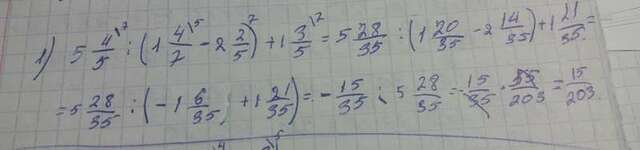 1) 5 4/5 \7 : (1 4/7 \5 - 2 2/5 \7) + 1 3/5 \7 = 5 28/35 : (1 20/35 - 2 14/35) + 1 21/35 =
= 5 28/35 : (-1 6/35 + 1 21/35) = - 15/35 : 5 28/35 = 15/35 · 35/203 = 15/203